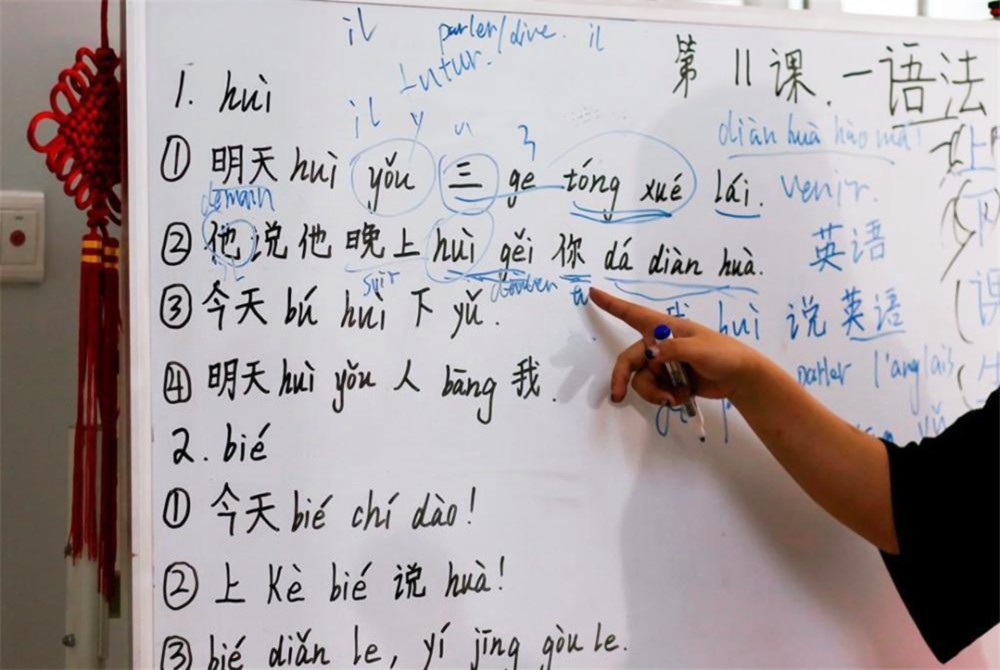 il parler/dire. il
futur.
第11课.一语法
1. huì
il
diàn huà hào mǎ!
① 明天 huì yǒu 三 ge tóng xué lái. venir.
demain
② 他说他晚上 huì gěi 你 dá diàn huà. 英语
soir tu
③ 今天 bú huì 下 yǔ. huì 说英语
④ 明天 huì yǒu 人 bāng 我. parler l'anglais
2. bié
① 今天 bié chí dào!
② 上 Kè bié 说 huà!
③ bié diǎn le, yí jīng gòu le.